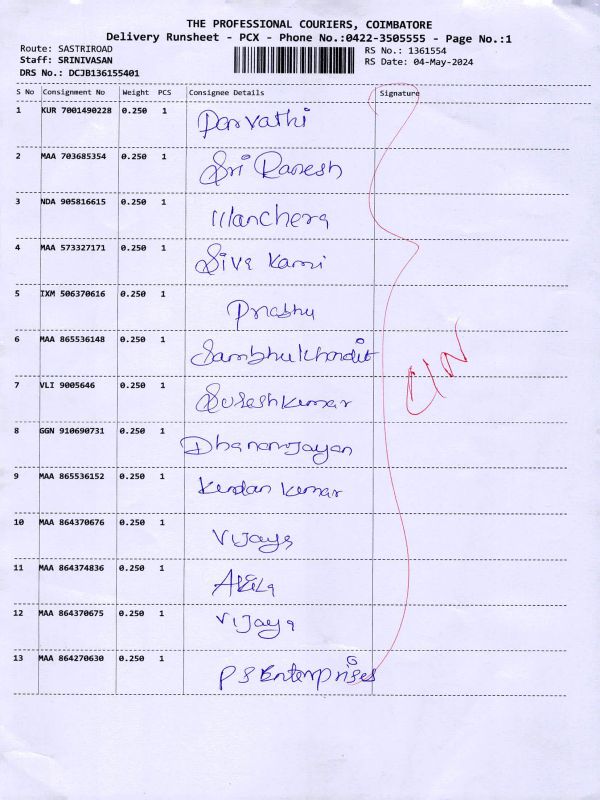 THE PROFESSIONAL COURIERS, COIMBATORE
Delivery Runsheet - PCX - Phone No.:0422-3505555 - Page No.:1
Route: SASTRIROAD RS No.: 1361554
Staff: SRINIVASAN RS Date: 04-May-2024
DRS No.: DCJB136155401
S No Consignment No Weight PCS Consignee Details Signature
1 KUR 7001490228 0.250 1 Parvathi
2 MAA 703685354 0.250 1 Sri Ramesh
3 NDA 905816615 0.250 1 Manchera
4 MAA 573327171 0.250 1 Siva Kami
5 IXM 506370616 0.250 1 Prabhu
6 MAA 865536148 0.250 1
7 VLI 9005646 0.250 1 Suresh Kumar
8 GGN 910690731 0.250 1 Dhananjayan
9 MAA 865536152 0.250 1 Kundan Kumar
10 MAA 864370676 0.250 1 Vijaya
11 MAA 864374836 0.250 1 Akila
12 MAA 864370675 0.250 1 Vijaya
13 MAA 864270630 0.250 1 PS Enterprises